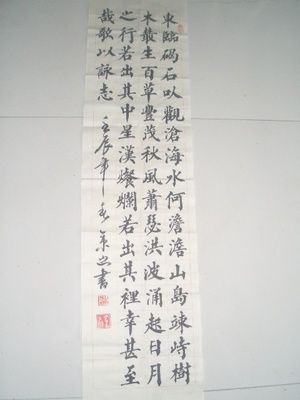 東臨碣石以觀滄海水何澹澹山島竦峙樹
木叢生百草豐茂秋風蕭瑟洪波涌起日月
之行若出其中星漢燦爛若出其裡幸甚至
哉歌以詠志 壬辰年春 書